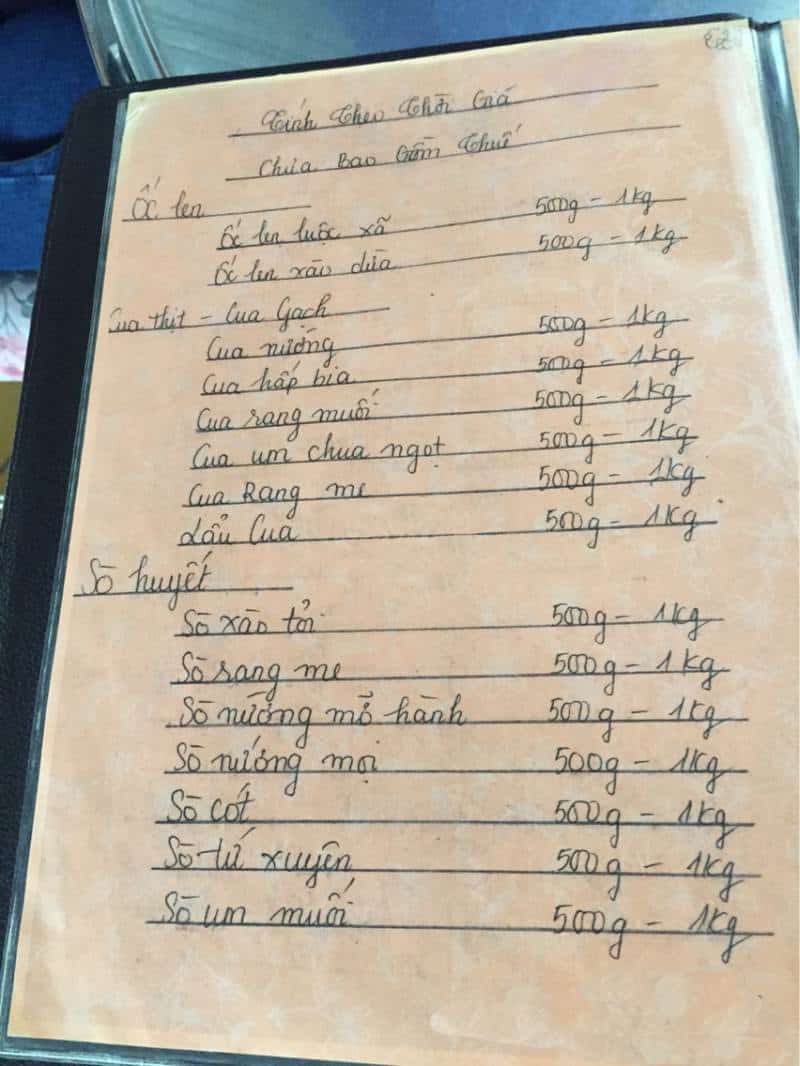 Tính Theo Thời Giá
Chưa Bao Gồm Thuế
Ốc len
Ốc len luộc xã 500g - 1kg
Ốc len xào dừa 500g - 1kg
Cua thịt - Cua Gạch
Cua nướng 500g - 1kg
Cua hấp bia 500g - 1kg
Cua rang muối 500g - 1kg
Cua um chua ngọt 500g - 1kg
Cua Rang me 500g - 1kg
Lẩu Cua 500g - 1kg
Sò huyết
Sò xào tỏi 500g - 1kg
Sò rang me 500g - 1kg
Sò nướng mỡ hành 500g - 1kg
Sò nướng mọi 500g - 1kg
Sò cốt 500g - 1kg
Sò tứ xuyên 500g - 1kg
Sò um muối 500g - 1kg